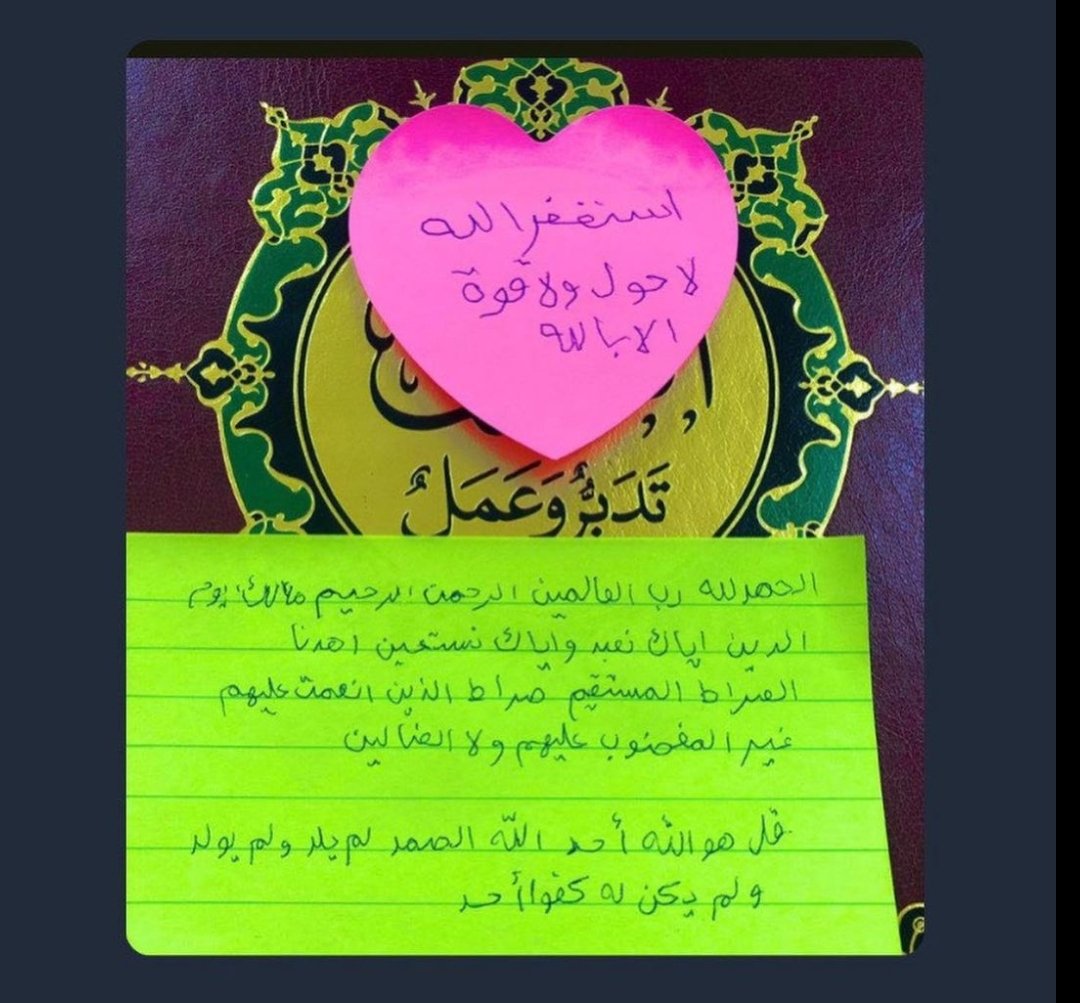 استغفر الله
لا حول ولا قوة
الا بالله
تَدَبُّرٌ وَعَمَلٌ
الحمدلله رب العالمين الرحمن الرحيم مالك يوم
الدين اياك نعبد واياك نستعين اهدنا
الصراط المستقيم صراط الذين انعمت عليهم
غير المغضوب عليهم ولا الضالين
قل هو الله أحد الله الصمد لم يلد ولم يولد
ولم يكن له كفوا أحد